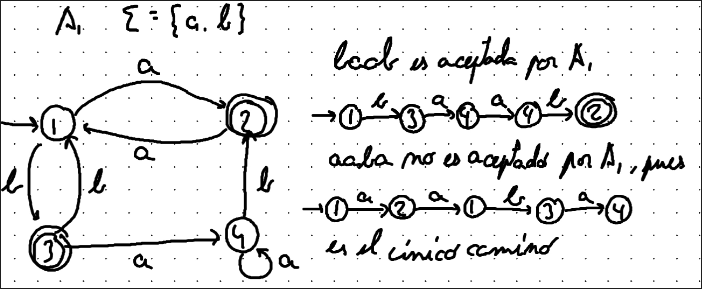 A₁ Σ = {a, b}
a
1
2
a
b
b
b
3
a
4
a
baab es aceptada por A₁
1 b 3 a 4 a 4 b 2
aaba no es aceptado por A₁, pues
1 a 2 a 1 b 3 a 4
es el único camino